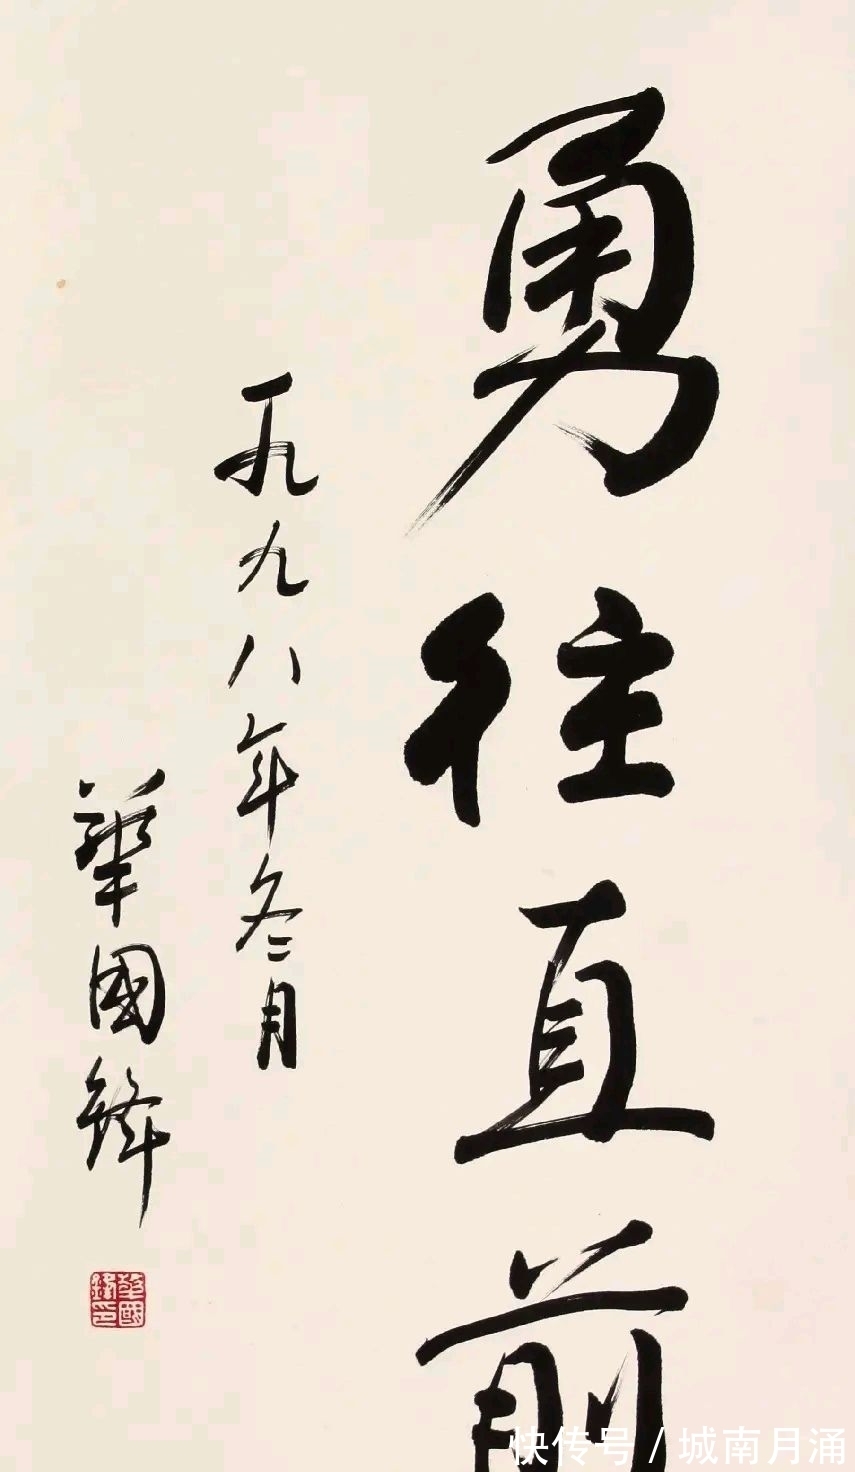 勇往直前
一九九八年冬月
華國鋒
華國鋒印
快传号 / 城南月涌